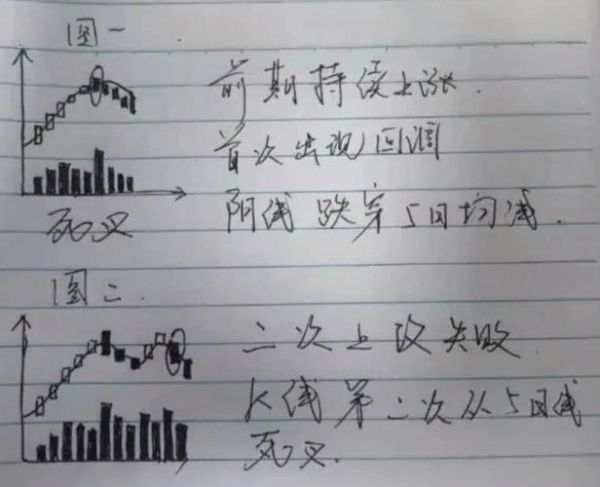 图一
前期持续上涨.
首次出现回调
阴线 跌穿5日均线.
死叉
图二.
二次上攻失败
K线第二次从5日线
死叉.